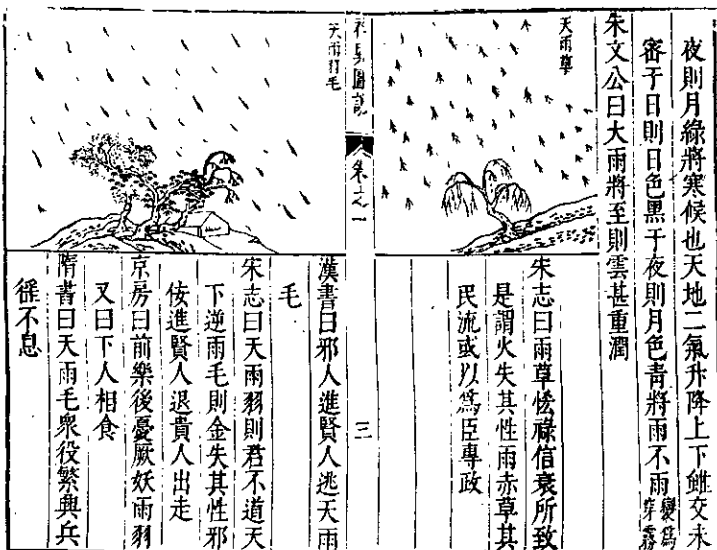 夜則月綠將寒候也天地二氣升降上下雖交未
密于日則日色黑于夜則月色青將雨不雨變為
穿霧
朱文公曰大雨將至則雲甚重潤
天雨草
宋志曰雨草恡祿信衰所致
是謂火失其性雨赤草其
民流或以為臣專政
祥異圖說
卷之一
三
天雨羽毛
漢書曰邪人進賢人逃天雨
毛
宋志曰天雨羽則君不道天
下逆雨毛則金失其性邪
佞進賢人退貴人出走
京房曰前樂後憂厥妖雨羽
又曰下人相食
隋書曰天雨毛衆役繁興兵
徭不息